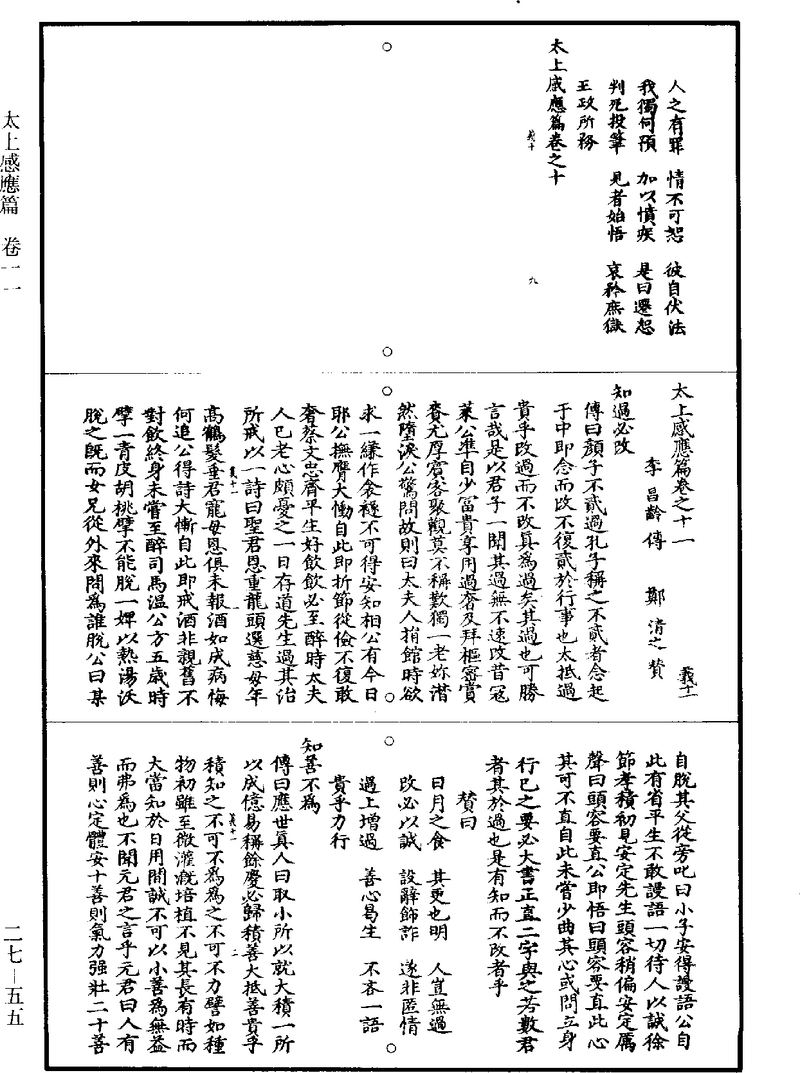 太上感應篇　卷一一
二七—五五
人之有罪　情不可恕　彼自伏法
我獨何預　加以憤疾　是曰遷怒
判死投筆　見者始悟　哀矜庶獄
王政所務
太上感應篇卷之十
義十　九
太上感應篇卷之十一　義十一
李昌齡傳　鄭清之贊
知過必改
傳曰顏子不貳過孔子稱之不貳者念起
于中即念而改不復貳於行事也太抵過
貴乎改過而不改真為過矣其過也可勝
言哉是以君子一聞其過無不速改昔寇
萊公準自少冨貴享用過奢及拜樞密賞
賚尤厚賓客聚觀莫不稱歎獨一老妳潸
然墮淚公驚問故則曰太夫人捐館時欲
求一縑作衾襚不可得安知相公有今日
耶公撫膺大慟自此即折節從儉不復敢
奢蔡文忠齊平生好飲飲必至醉時太夫
人已老心頗憂之一日存道先生過其治
所戒以一詩曰聖君恩重龍頭選慈母年
義十一　一
高鶴髮垂君寵母恩俱未報酒如成病悔
何追公得詩大慚自此即戒酒非親舊不
對飲終身未嘗至醉司馬溫公方五歲時
擘一青皮胡桃擘不能脫一婢以熱湯沃
脫之既而女兄從外來問為誰脫公曰某
自脫其父從旁叱曰小子安得謾語公自
此有省平生不敢謾語一切待人以誠徐
節孝積初見安定先生頭容稍偏安定厲
聲曰頭容要直公即悟曰頭容要直此心
其可不直自此未嘗少曲其心或問立身
行己之要必大書正直二字與之若數君
者其於過也是有知而不改者乎
贊曰
日月之食　其更也明　人豈無過
改必以誠　設辭飾詐　遂非匿情
過上增過　善心曷生　不吝一語
貴乎力行
知善不為
傳曰應世真人曰取小所以就大積一所
以成億易稱餘慶必歸積善大抵善貴乎
義十一　二
積知之不可不為為之不可不力譬如種
物初雖至微灌溉培植不見其長有時而
大當知於日用間誠不可以小善為無益
而弗為也不聞元君之言乎元君曰人有
善則心定體安十善則氣力強壯二十善